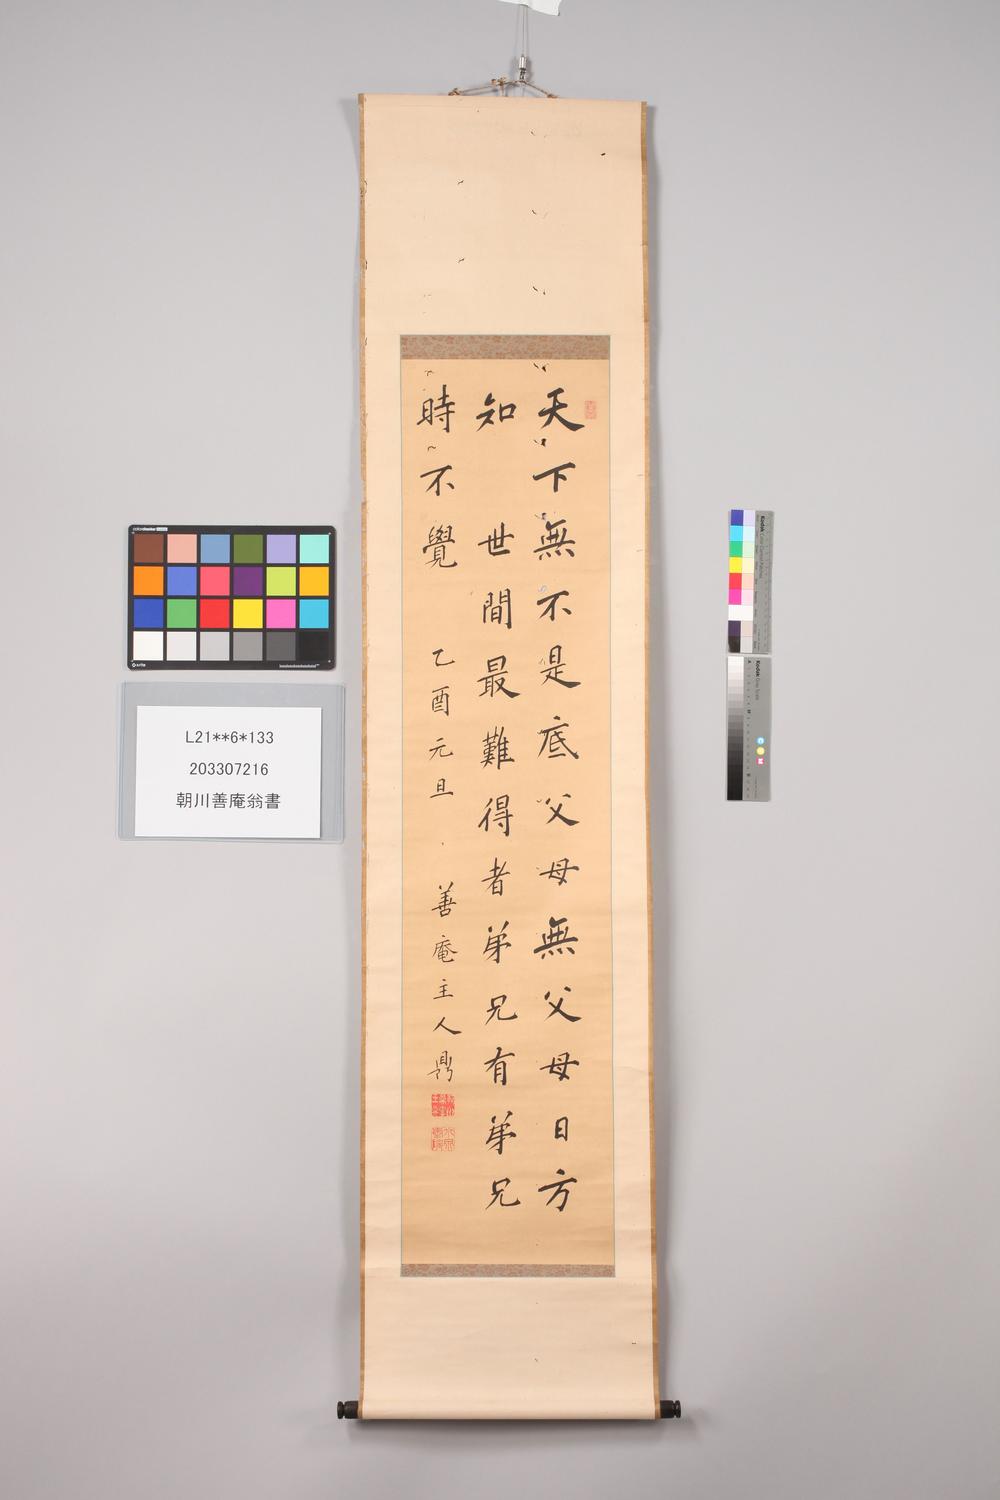 天下無不是底父母無父母日方
知 世間最難得者弟兄有弟兄
時不覺 乙酉元旦 善庵主人鼎
L21**6*133
203307216
朝川善庵翁書